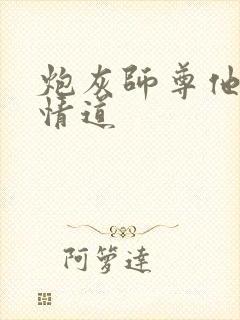 炮灰師尊他
情道
阿箩達